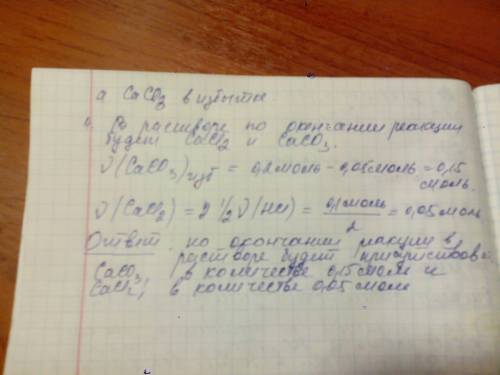 а CaCO3 в избытке
4. В растворе по окончании реакции
будет CaCl2 и CaCO3.
ν(CaCO3)изб = 0,2моль - 0,05моль = 0,15
моль.
ν(CaCl2) = 1/2 ν(HCl) = 0,1моль/2 = 0,05моль
Ответ: по окончании реакции в
растворе будет присутствов
CaCO3 в количестве 0,15 моль и
CaCl2 в количестве 0,05 моль